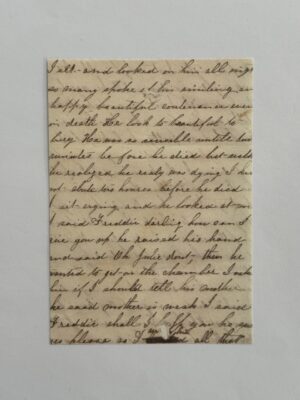 I sat and looked on him all night
so many spoke of his smiling an
happy beautiful countenance even
in death He look to beautiful to
bury He was so sensible untill two
minutes before he died but
he realized he realy was dying I
not about two houres before he died
I set crying and he looked at me
I said Freddie darling how can I
give you up he raised his hand
and said Oh Julie dont, then he
wanted to get on the chamber I
him if I should tell his mother
he said mother is weak I said
Freddie shall I you he
yes please so I and all that